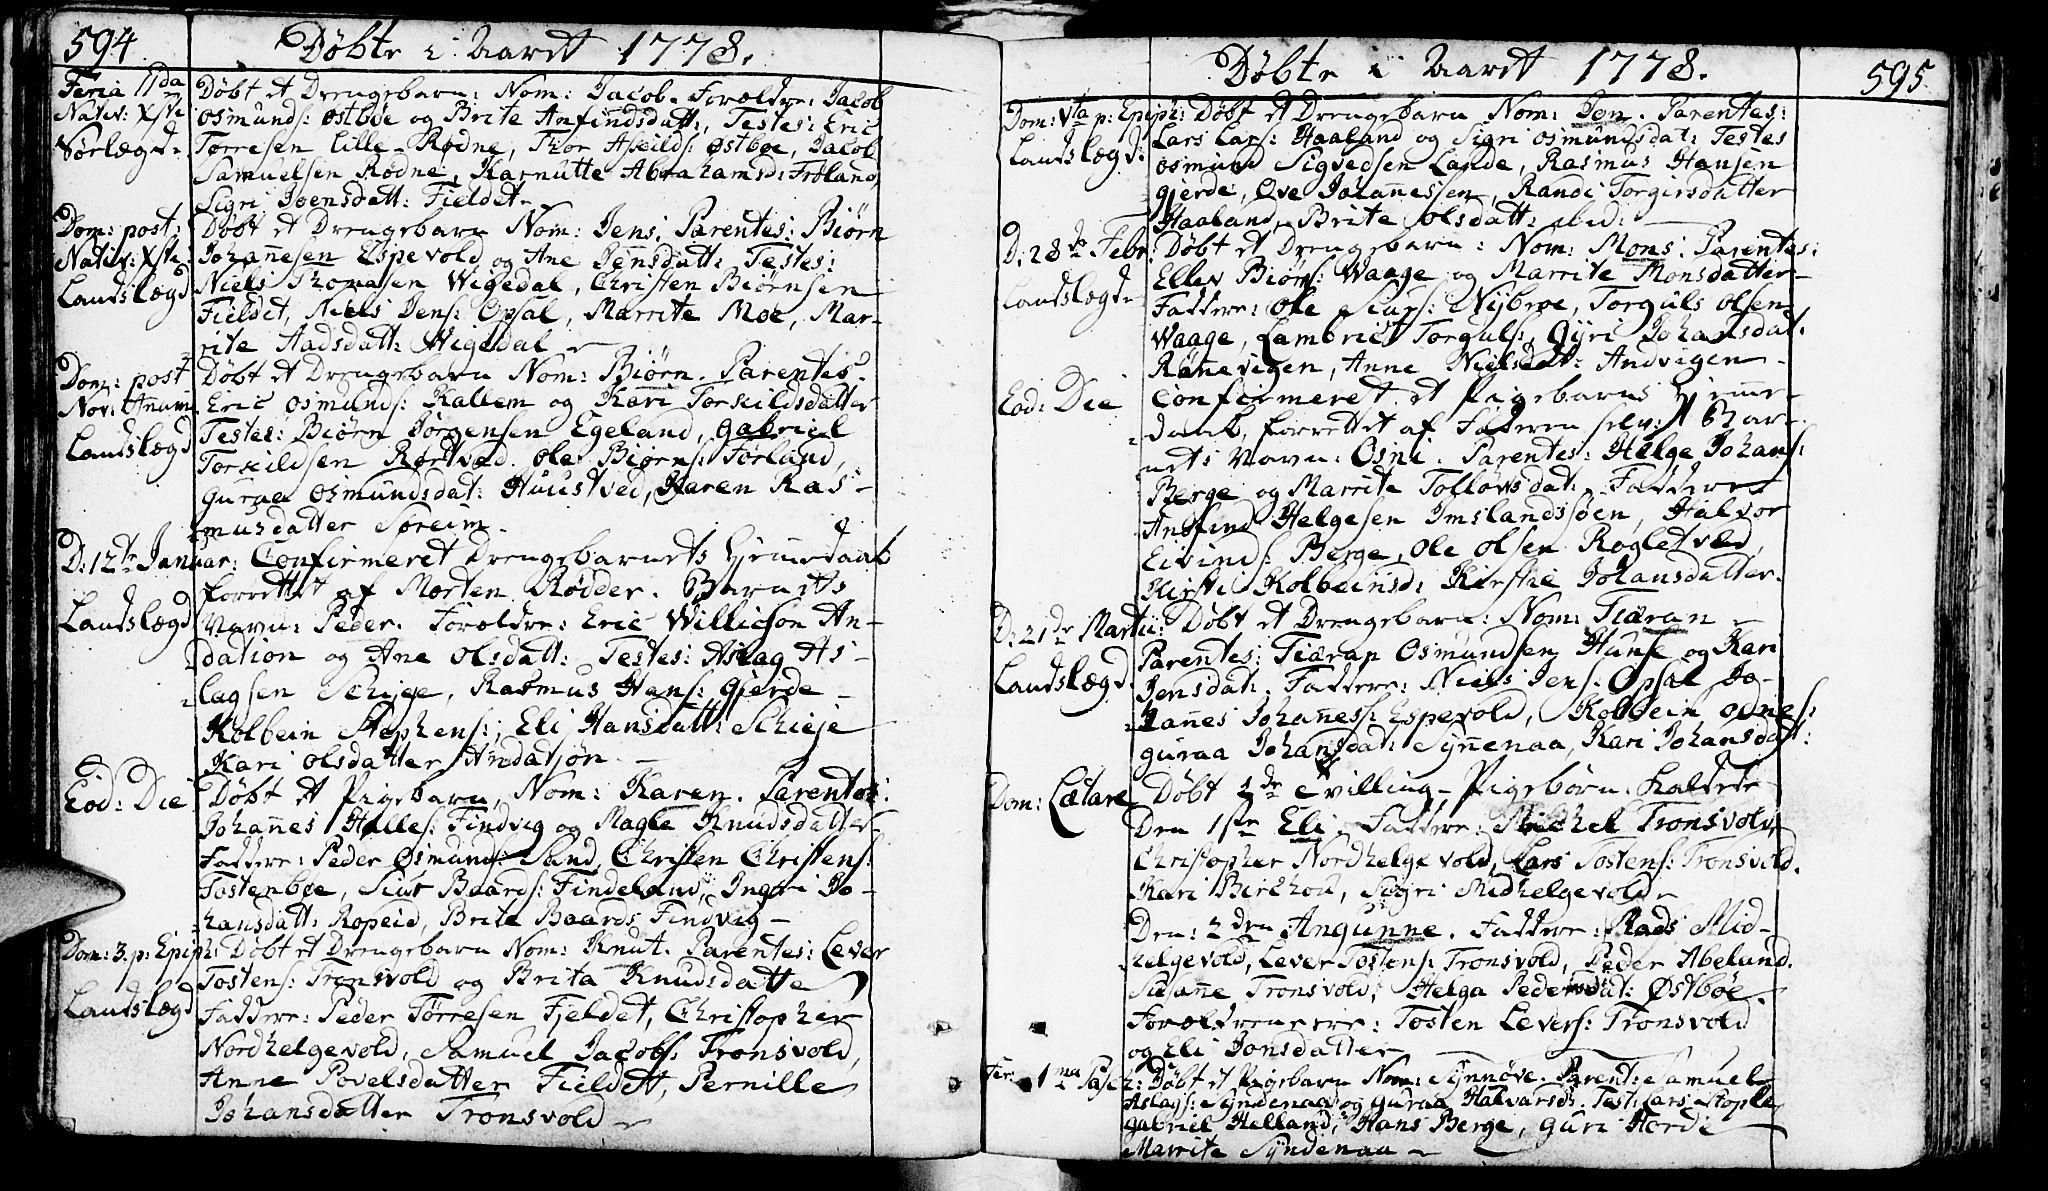 594.
Døbte i Aaret 1778.
Feria IIda
Nativ: Xsti
Sørlægd:
Døbt et Drengebarn: Nom: Jacob. Forældre: Jacob
Osmunds: Østbøe og Brite Anfindsdatt:, Testes: Eric
Torresen Lille-Rødne, Thor Aseilds: Østbøe, Jacob
Samuelsen Rødne, Karnutte Abrahamsd: Frøland,
Sigri Joensdatt: Fieldet.
Dom: post:
Nativ: Xsti:
Landslægd
Døbt et Drengebarn Nom: Jens. Parentes: Biørn
Johañesen Espevold og Ane Jensdatt: Testes:
Niels Thomasen Wigedal, Christen Biørnsen
Fieldet, Niels Jens: Opsal, Marrite Moe, Mar-
rite Aadsdatt: Wigedal
Dom: post
Nov: Añum
Landslægd
Døbt et Drengebarn Nom: Biørn. Parentes:
Eric Osmunds: Kallem og Kari Torkildsdatter
Testes: Biørn Jørgensen Egeland, Gabriel
Torkildsen Rørtved. Ole Biørns: Førland,
Guraa Osmundsdat: Huustved, Karen Ras-
musdatter Søreim.
D: 12te Januar:
Landslægd
Confirmeret Drengebarnets Hiemedaab
forrettet af Morten Rødder. Barnets
Navn: Peder. Forældre: Eric Willicson An-
dation og Ane Olsdatt: Testes: Aslag As-
lagsen Schije, Rasmus Hans: Gjerde
Kolbein Stephens:, Eli Hansdatt: Schieje
Kari Olsdatter Andatjøn.
Eod: Die
Døbt et Pigebarn, Nom: Karen. Parentes:
Johañes Halles: Findvig og Magle Knudsdatter
Faddere: Peder Osmunds: Sand, Christen Christens:
Tostenbøe, Siur Baards: Findeland, Ingeri Jo-
hansdatt: Ropeid, Brite Baards: Findvig
Dom: 3. p: Epiph:
Landslægd
Døbt et Drengebarn Nom: Knut. Parentes: Lever
Tostens: Tronsvold og Brita Knudsdatter
Faddere: Peder Tørresen Fjeldet, Christopher
Nordhelgevold, Samuel Jacobs: Tronsvold,
Anne Povelsdatter Fieldet, Pernille
Johansdatter Tronsvold
Døbte i Aaret 1778.
595.
Dom: Vta p: Epiph:
Landslægd:
Døbt et Drengebarn Nom: Jon. Parentes:
Lars Lars: Haaland og Sigri Osmundsdat: Testes
Osmund Sigvedsen Lande, Rasmus Hansen
Gjerde, Ove Johañessen, Randi Torgersdatter
Haaland, Brite Olsdatt: ibid:
D: 28de Febr:
Landslægd
Døbt et Drengebarn: Nom: Mons. Parentes:
Ellev Biørs: Waage og Marrite Monsdatter
Faddere: Ole Siurs: Nybroe, Torguls Olsen
Waage, Lambrict Torguls:, Gyri Johansdat:
Rønevigen, Anne Nielsdat: Andvigen
Eod: Die
Confirmeret et Pigebarns Hieme-
daab, forrettet af Faderen selv: Bar-
nets Navn: Osni. Parentes: Helge Johans:
Berge og Marrite Tollovsdat. Faddere
Anfind Helgesen Imslandssøen, Halvor
Eivinds: Berge, Ole Olsen Rogletvæd,
Kirsti Kolbeinsd: Kirstie Johansdatter.
D: 21de Martii:
Landslægd
Døbt et Drengebarn: Nom: Tiæran
Parentes: Tiæran Osmundsen Hunse og Kari
Jensdat: Faddere: Niels Jens: Opsal Jo-
hañes Johañess: Espevold, Kolbein Ovnes:
Guraa Johansdat: Synnenaa, Kari Johansdat:
Dom: Lætare
Døbt 2de Tvilling-Pigebørn. Kaldet
Den 1ste Eli. Faddere: Michel Tronsvold,
Christopher Nordhelgevold, Lars Tostens: Tronsvold.
Kari Birchou, Sigri Midhelgevold
Den: 2den Angunne. Faddere: Mads Mid-
helgevold, Lever Tostens: Tronsvold, Peder Abeland.
Susañe Tronsvold, Helga Pedersdat: Østbøe.
Forældrene ere: Tosten Levers: Tronsvold
og Eli Jonsdatter
Fer: 1ma Pasch:
Døbt et Pigebarn Nom: Synnøve. Parent: Samuel
Aslags: Syndenaa og Guraa Halvarsd: Test: Lars Stople
Gabriel Helland, Hans Berge, Guri Horde
Marrite Syndenaa